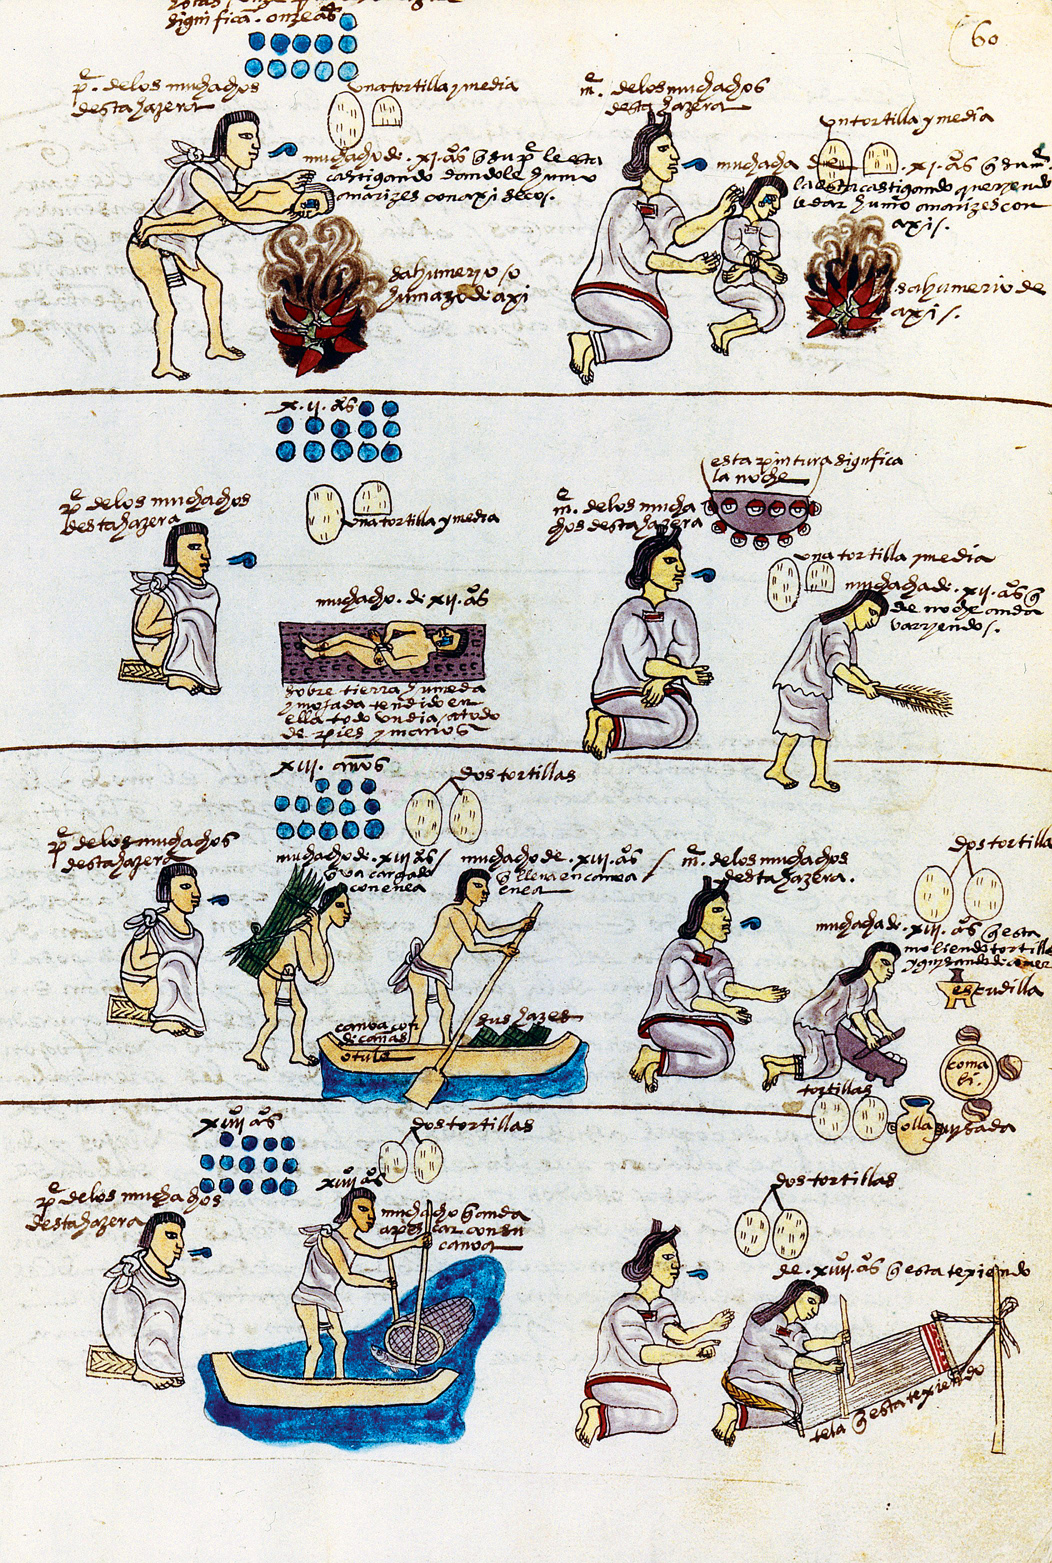 significa. onze aºs
60
pᵉ. de los muchachos
desta hazera
una tortilla y media
muchacho de. xi. aºs q̄ su pᵉ le esta
castigando dandole humo
a narizes con axi secos.
sahumerio o
humazo de axi
mᵉ. de los muchachos
desta hazera
un tortilla y media
muchacha de. xi. aºs q̄ su mᵉ.
la esta castigando queryendo
le dar humo a narizes con
axi.
sahumerio de
axi.
x.ii. aºs
pᵉ de los muchachos
desta hazera
una tortilla y media
muchacho. de xii. aºs
sobre tierra humeda
y mojada tendido en
ella todo un dia / atado
de pies y manos
mᵉ. de los mucha
chos desta hazera
esta pintura significa
la noche
una tortilla y media
muchacha de. xii. aºs q̄
de noche anda
varryendo.
xiii. años
dos tortillas
pᵉ de los muchachos
desta hazera
muchacho de. xiii aºs /
q̄ va cargado
con enea
muchacho de. xiii. aºs /
q̄ lleva en canoa
enea
canoa con
de cañas
o tule
hus hazes
mᵉ. de los muchachos
desta hazera.
dos tortilla
muchacha de. xiii. aºs q̄ esta
moliendo tortilla
y guisando de comer
escudilla
coma
li.
tortillas
olla guysada
xiiii aºs
dos tortillas
pᵉ de los muchachos
desta hazera
xiiii aºs
muchacho q̄ anda
a pescar con su
canoa
dos tortillas
de. xiiii. aºs q̄ esta texiendo
tela q̄ esta texiendo